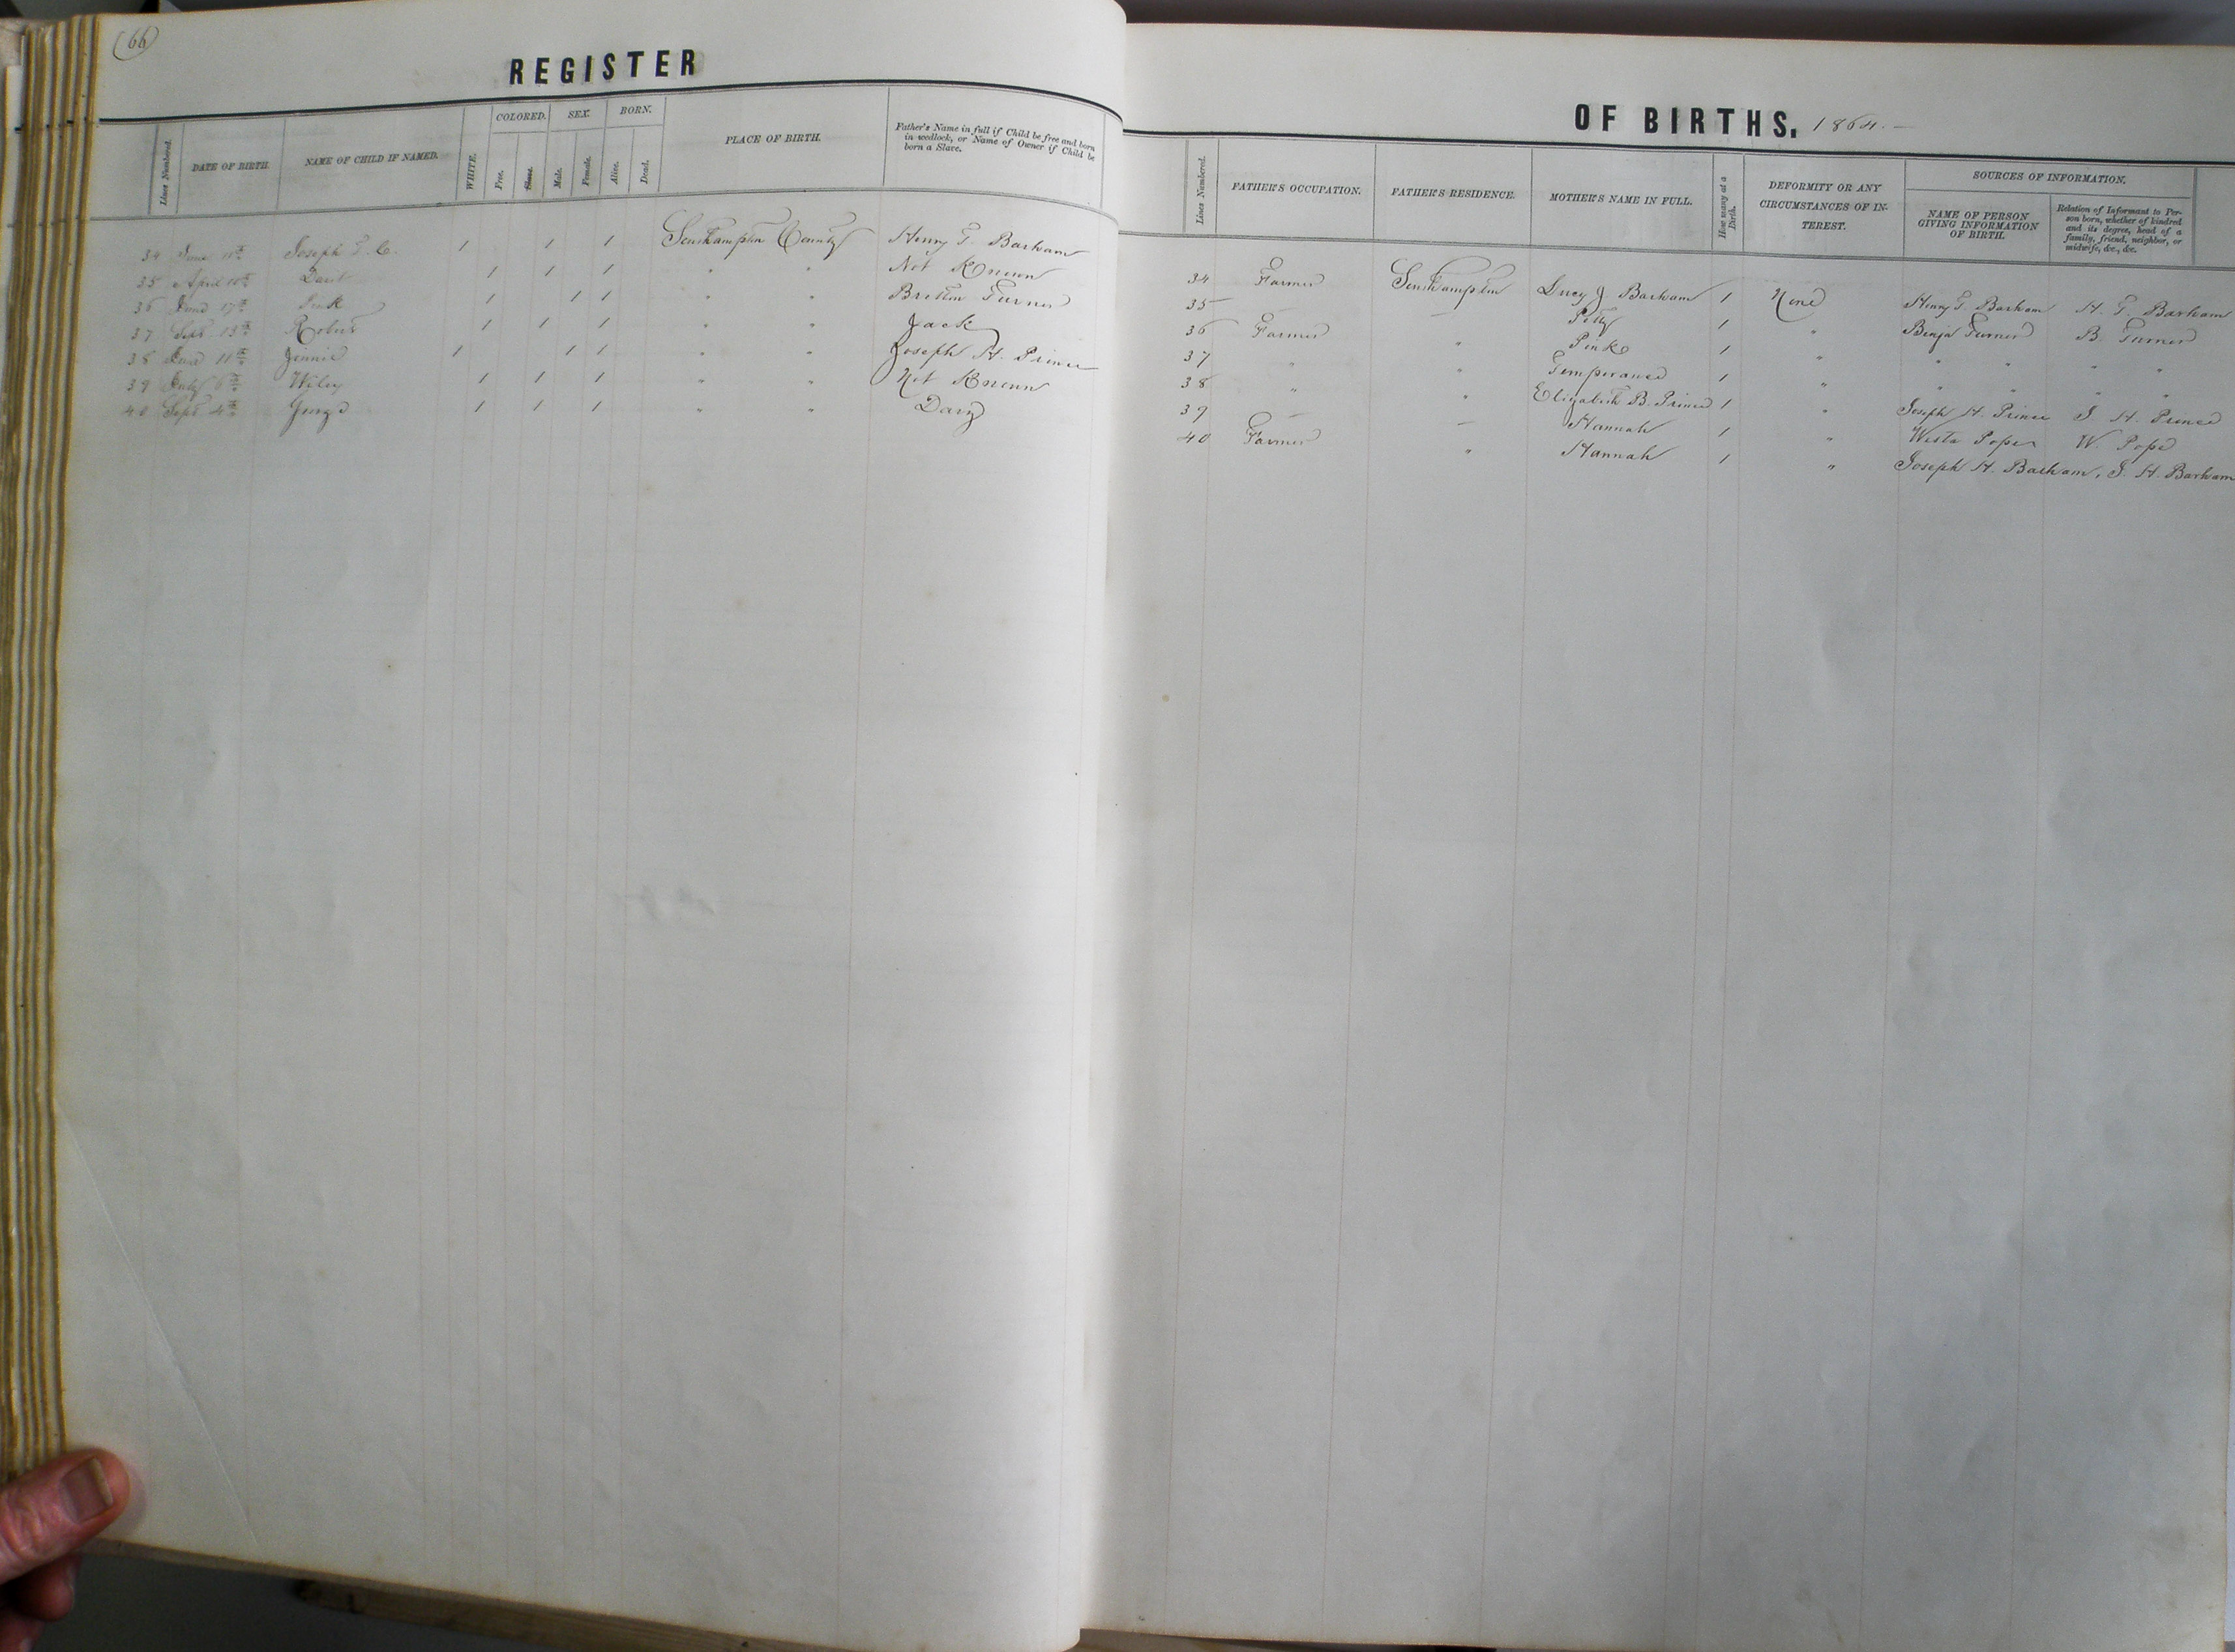 (66)
REGISTER
Lines Numbered.
DATE OF BIRTH.
NAME OF CHILD IF NAMED.
WHITE.
COLORED.
Free.
Slave.
SEX.
Male.
Female.
BORN.
Alive.
Dead.
PLACE OF BIRTH.
Father's Name in full if Child be free and born
in wedlock, or Name of Owner if Child be
born a Slave.
34 June Joseph T. C. 1 1 1 Southampton County Henry T. Barham
35 April 1 1 1 " " Not Known
36 June 17th Pink 1 1 1 " " Turner
37 Sept 13th Robert 1 1 1 " " Jack
38 June 11th Jinnie 1 1 1 " " Joseph H. Prince
39 July 6th Wiley 1 1 1 " " Not Known
40 Sept 4th George 1 1 1 " "
OF BIRTHS. 1864. —
Lines Numbered.
FATHER'S OCCUPATION.
FATHER'S RESIDENCE.
MOTHER'S NAME IN FULL.
How many at a
Birth.
DEFORMITY OR ANY
CIRCUMSTANCES OF IN-
TEREST.
SOURCES OF INFORMATION.
NAME OF PERSON
GIVING INFORMATION
OF BIRTH.
Relation of Informant to Per-
son born, whether of kindred
and its degree, head of a
family, friend, neighbor, or
midwife, &c., &c.
34 Farmer Southampton Lucy J Barham 1 None Henry T. Barham H. T. Barham
35 — — 1 " Benja Turner B Turner
36 Farmer " Pink 1 " " " " "
37 " " Temperance 1 " " " " "
38 " " Elizabeth B. Prince 1 " Joseph H. Prince J H. Prince
39 — — Hannah 1 " Pope W. Pope
40 Farmer " Hannah 1 " Joseph H. Barham, J. H. Barham